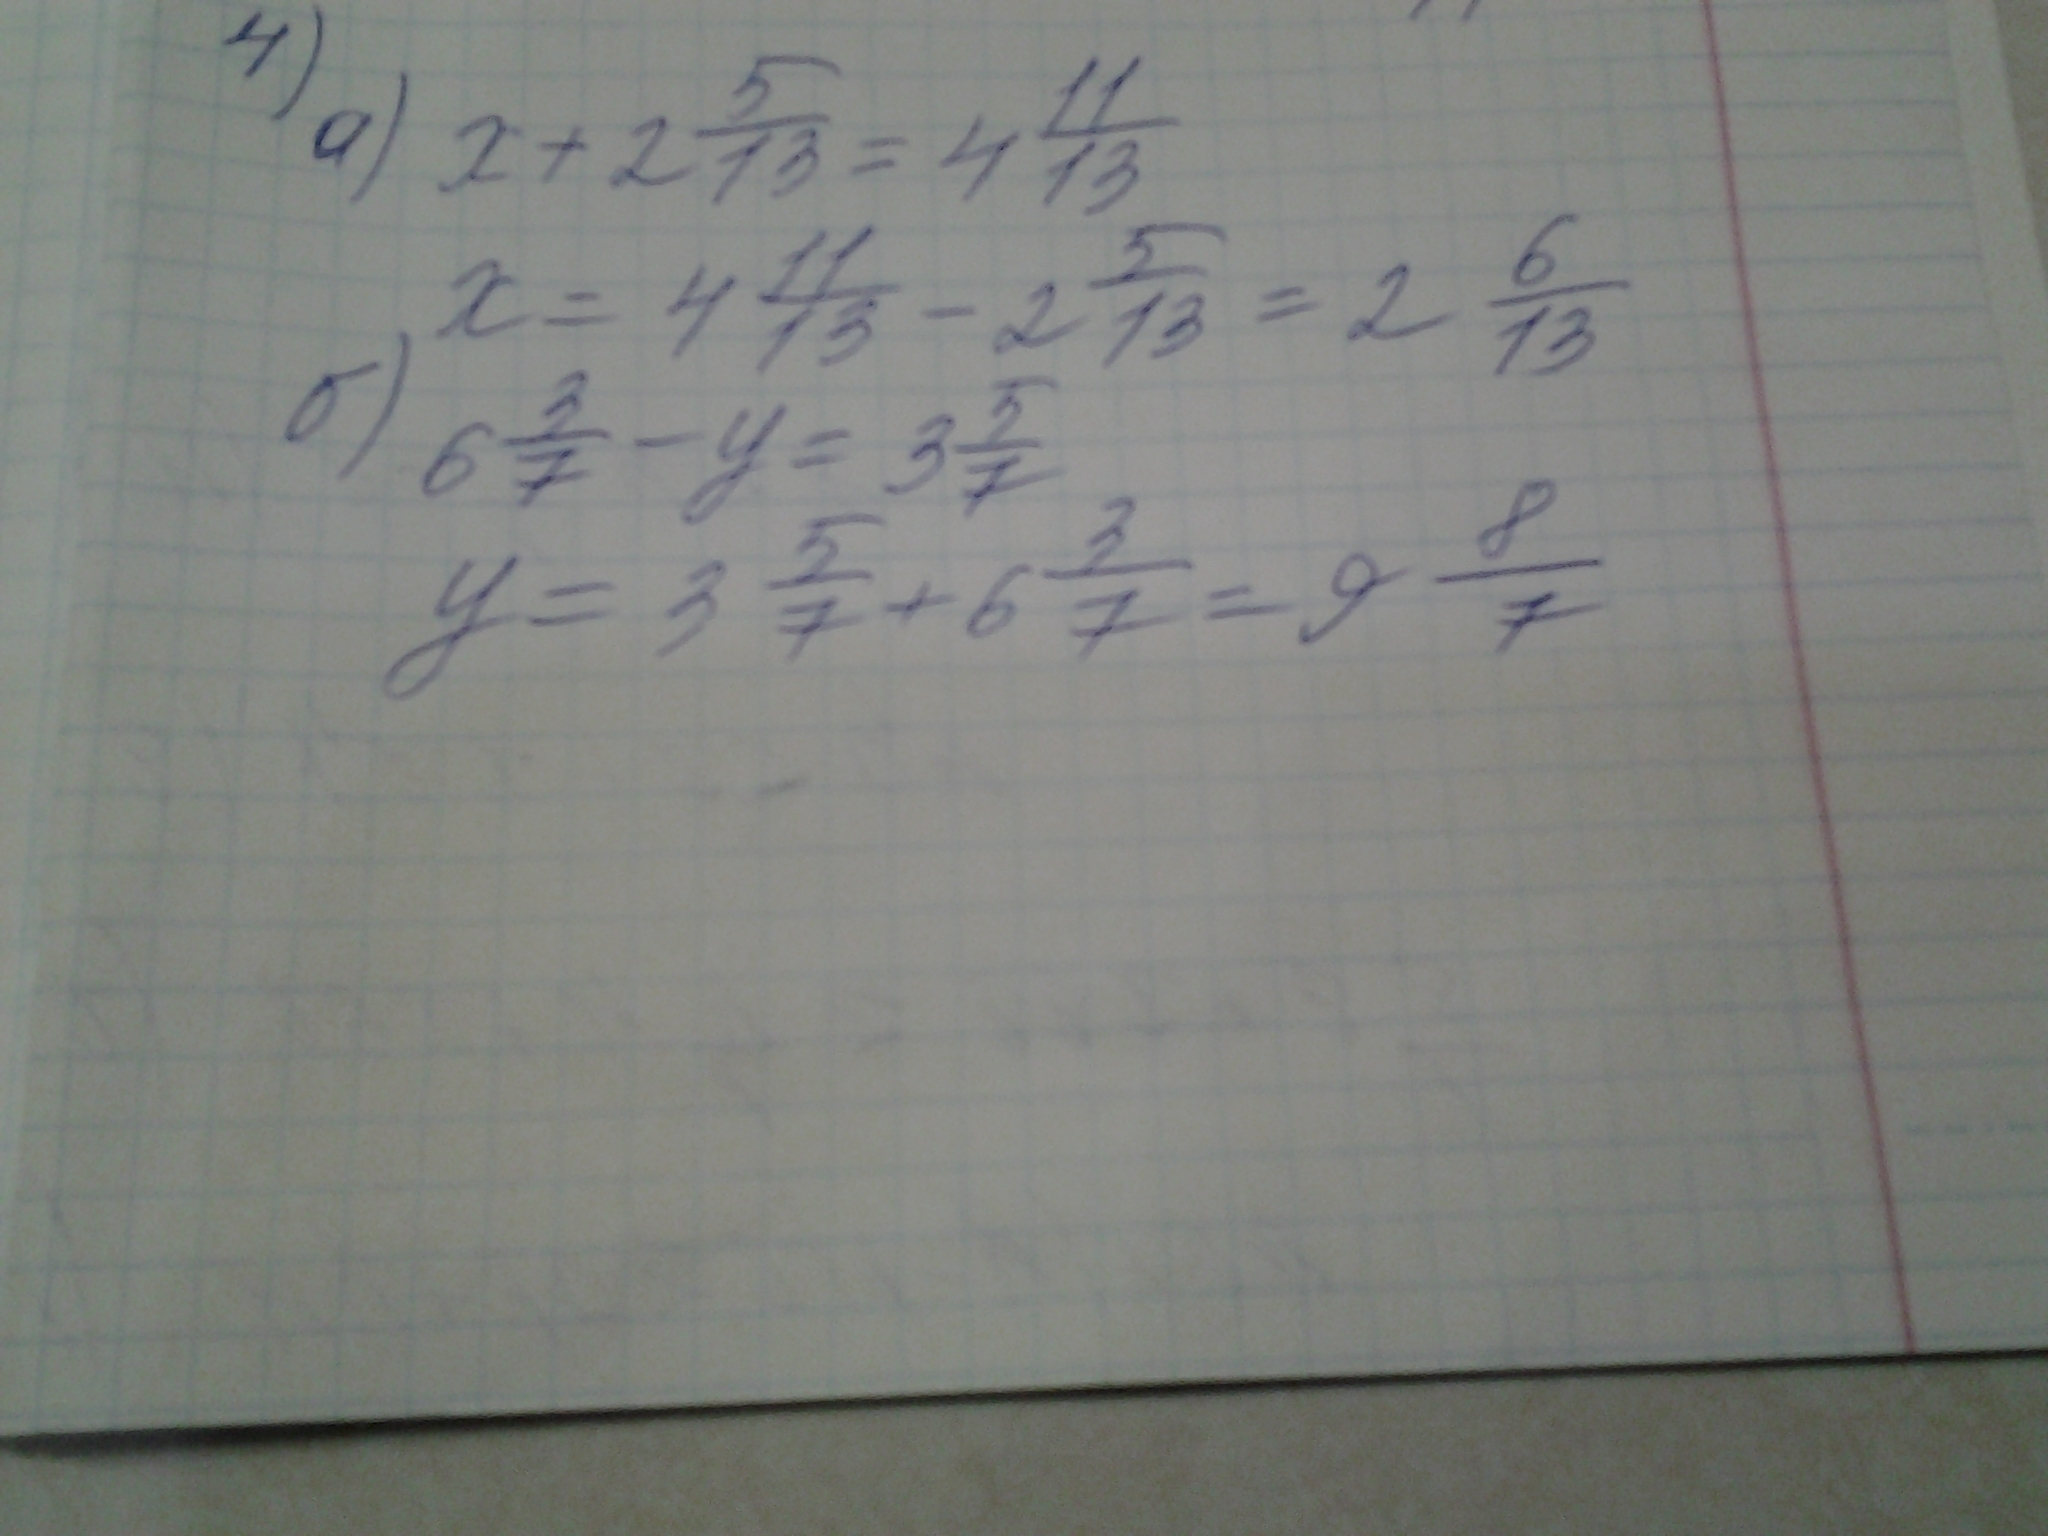 4)
а) x + 2 5/13 = 4 11/13
x = 4 11/13 - 2 5/13 = 2 6/13
б) 6 3/7 - y = 3 5/7
y = 3 5/7 + 6 3/7 = 9 8/7